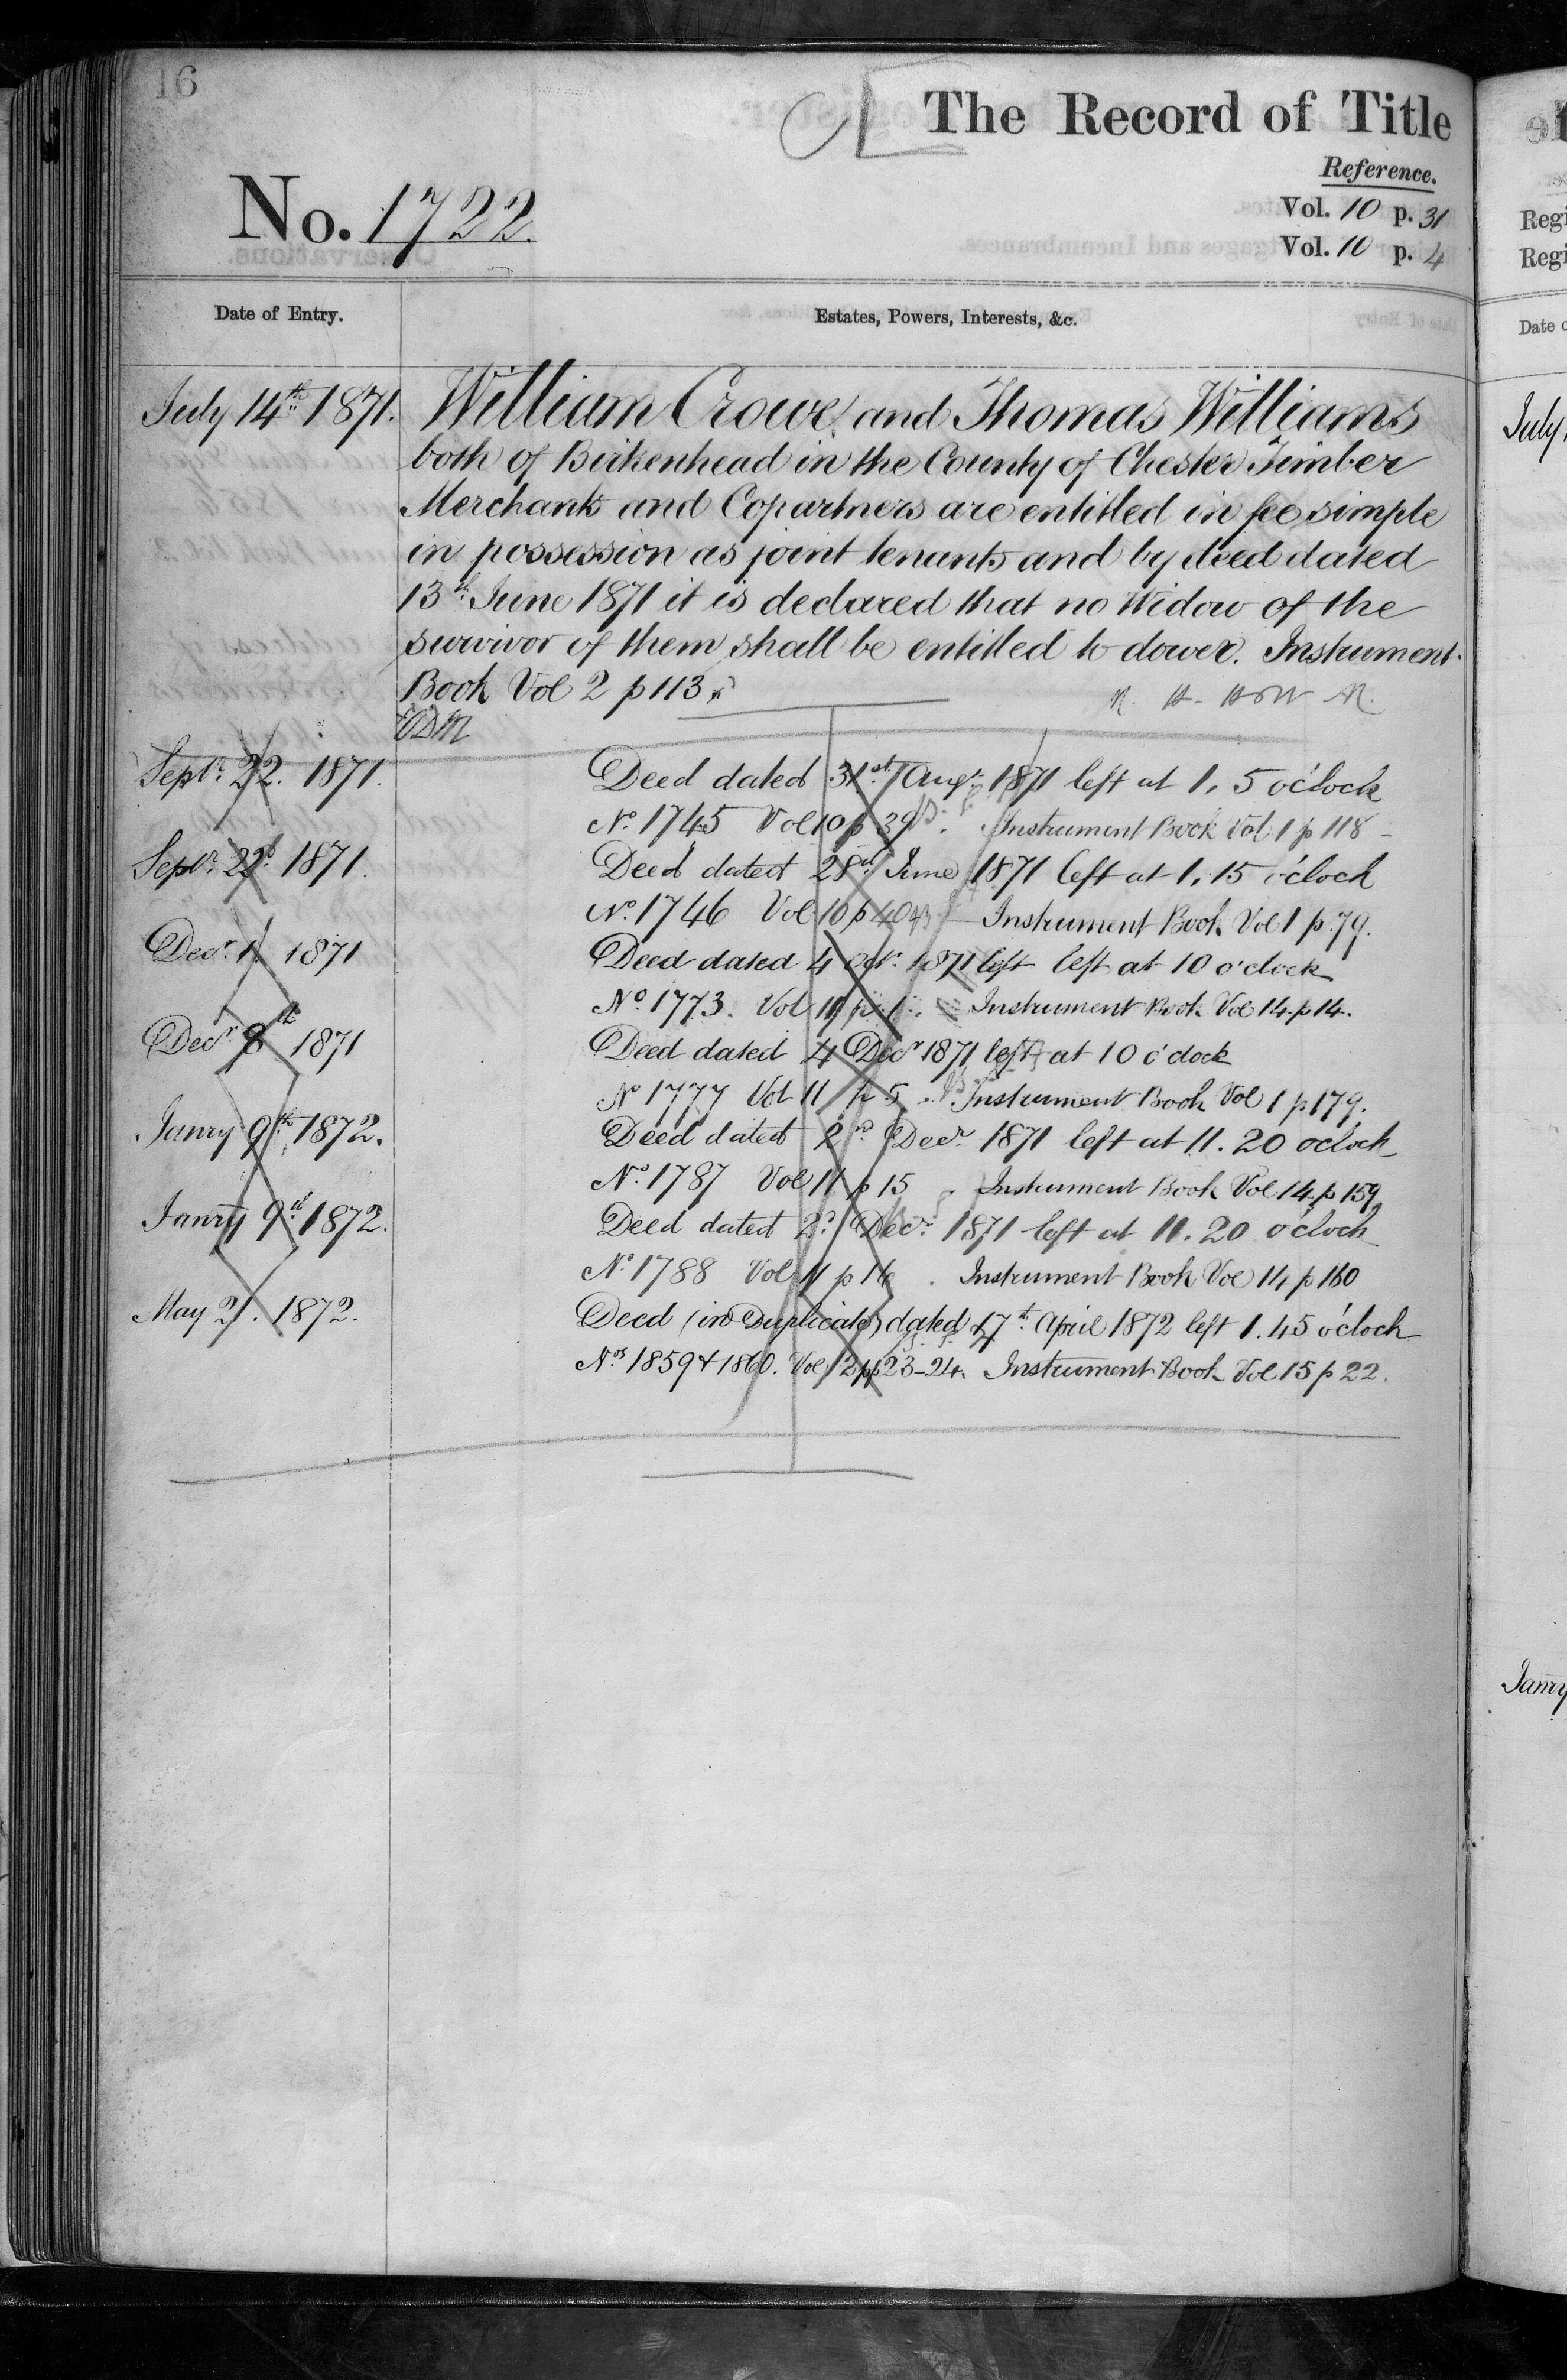 16
The Record of Title
Reference.
No. 1722.
Vol. 10 p. 31
Vol. 10 p. 4
Date of Entry.
Estates, Powers, Interests, &c.
July 14th 1871. William Crowe and Thomas Williams
both of Birkenhead in the County of Chester Timber
Merchants and Copartners are entitled in fee simple
in possession as joint tenants and by deed dated
13th June 1871 it is declared that no Widow of the
survivor of them shall be entitled to dower. Instrument
Book Vol 2 p 113
Septr. 22. 1871. Deed dated 31st Augt. 1871 left at 1, 5 o'clock
No. 1745 Vol 10 p 39. Instrument Book Vol 1 p 118 -
Septr. 22d. 1871. Deed dated 28th June 1871 left at 1, 15 o'clock
No. 1746 Vol 10 p 40 Instrument Book Vol 1 p. 79.
Decr. 1 1871 Deed dated 4 Octr. 1871 left left at 10 o'clock
No. 1773. Vol 11 p. 1. Instrument Book Vol 14 p 14.
Decr. 8th 1871 Deed dated 4 Decr 1871 left at 10 o'clock
No 1777 Vol 11 p 5. Instrument Book Vol 1 p 179.
Janry 9th 1872. Deed dated 2nd Decr. 1871 left at 11. 20 oclock
No. 1787 Vol 11 p 15 Instrument Book Vol 14 p 159
Janry 9th 1872. Deed dated 2d. Decr. 1871 left at 11. 20 o'clock
No. 1788 Vol 11 p 16. Instrument Book Vol 14 p 160
May 21. 1872. Deed (in Duplicate) dated 17th April 1872 left 1. 45 o'clock
Nos 1859 & 1860. Vol 12 pp 23-24. Instrument Book Vol 15 p 22.
Regi
Regi
Date o
July
Janry